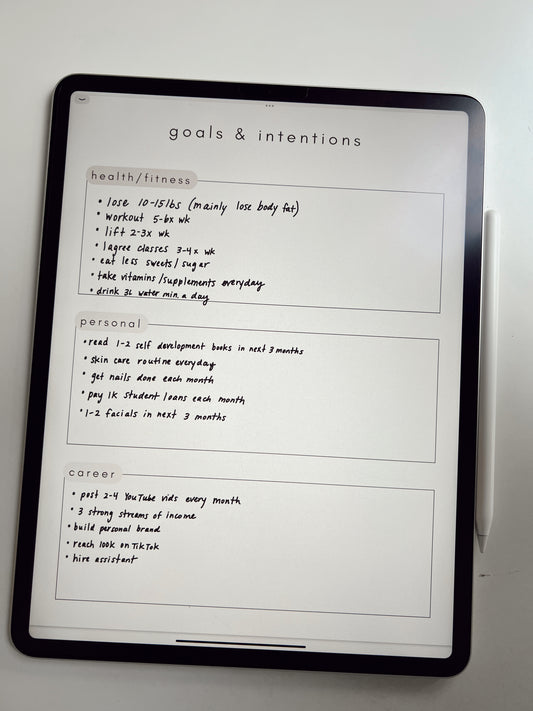 goals & intentions
health/fitness
• lose 10-15lbs (mainly lose body fat)
• workout 5-6x wk
• lift 2-3x wk
• lagree classes 3-4x wk
• eat less sweets/sugar
• take vitamins/supplements everyday
• drink 3L water min. a day
personal
• read 1-2 self development books in next 3 months
• skin care routine everyday
• get nails done each month
• pay 1K student loans each month
• 1-2 facials in next 3 months
career
• post 2-4 YouTube vids every month
• 3 strong streams of income
• build personal brand
• reach 100k on TikTok
• hire assistant